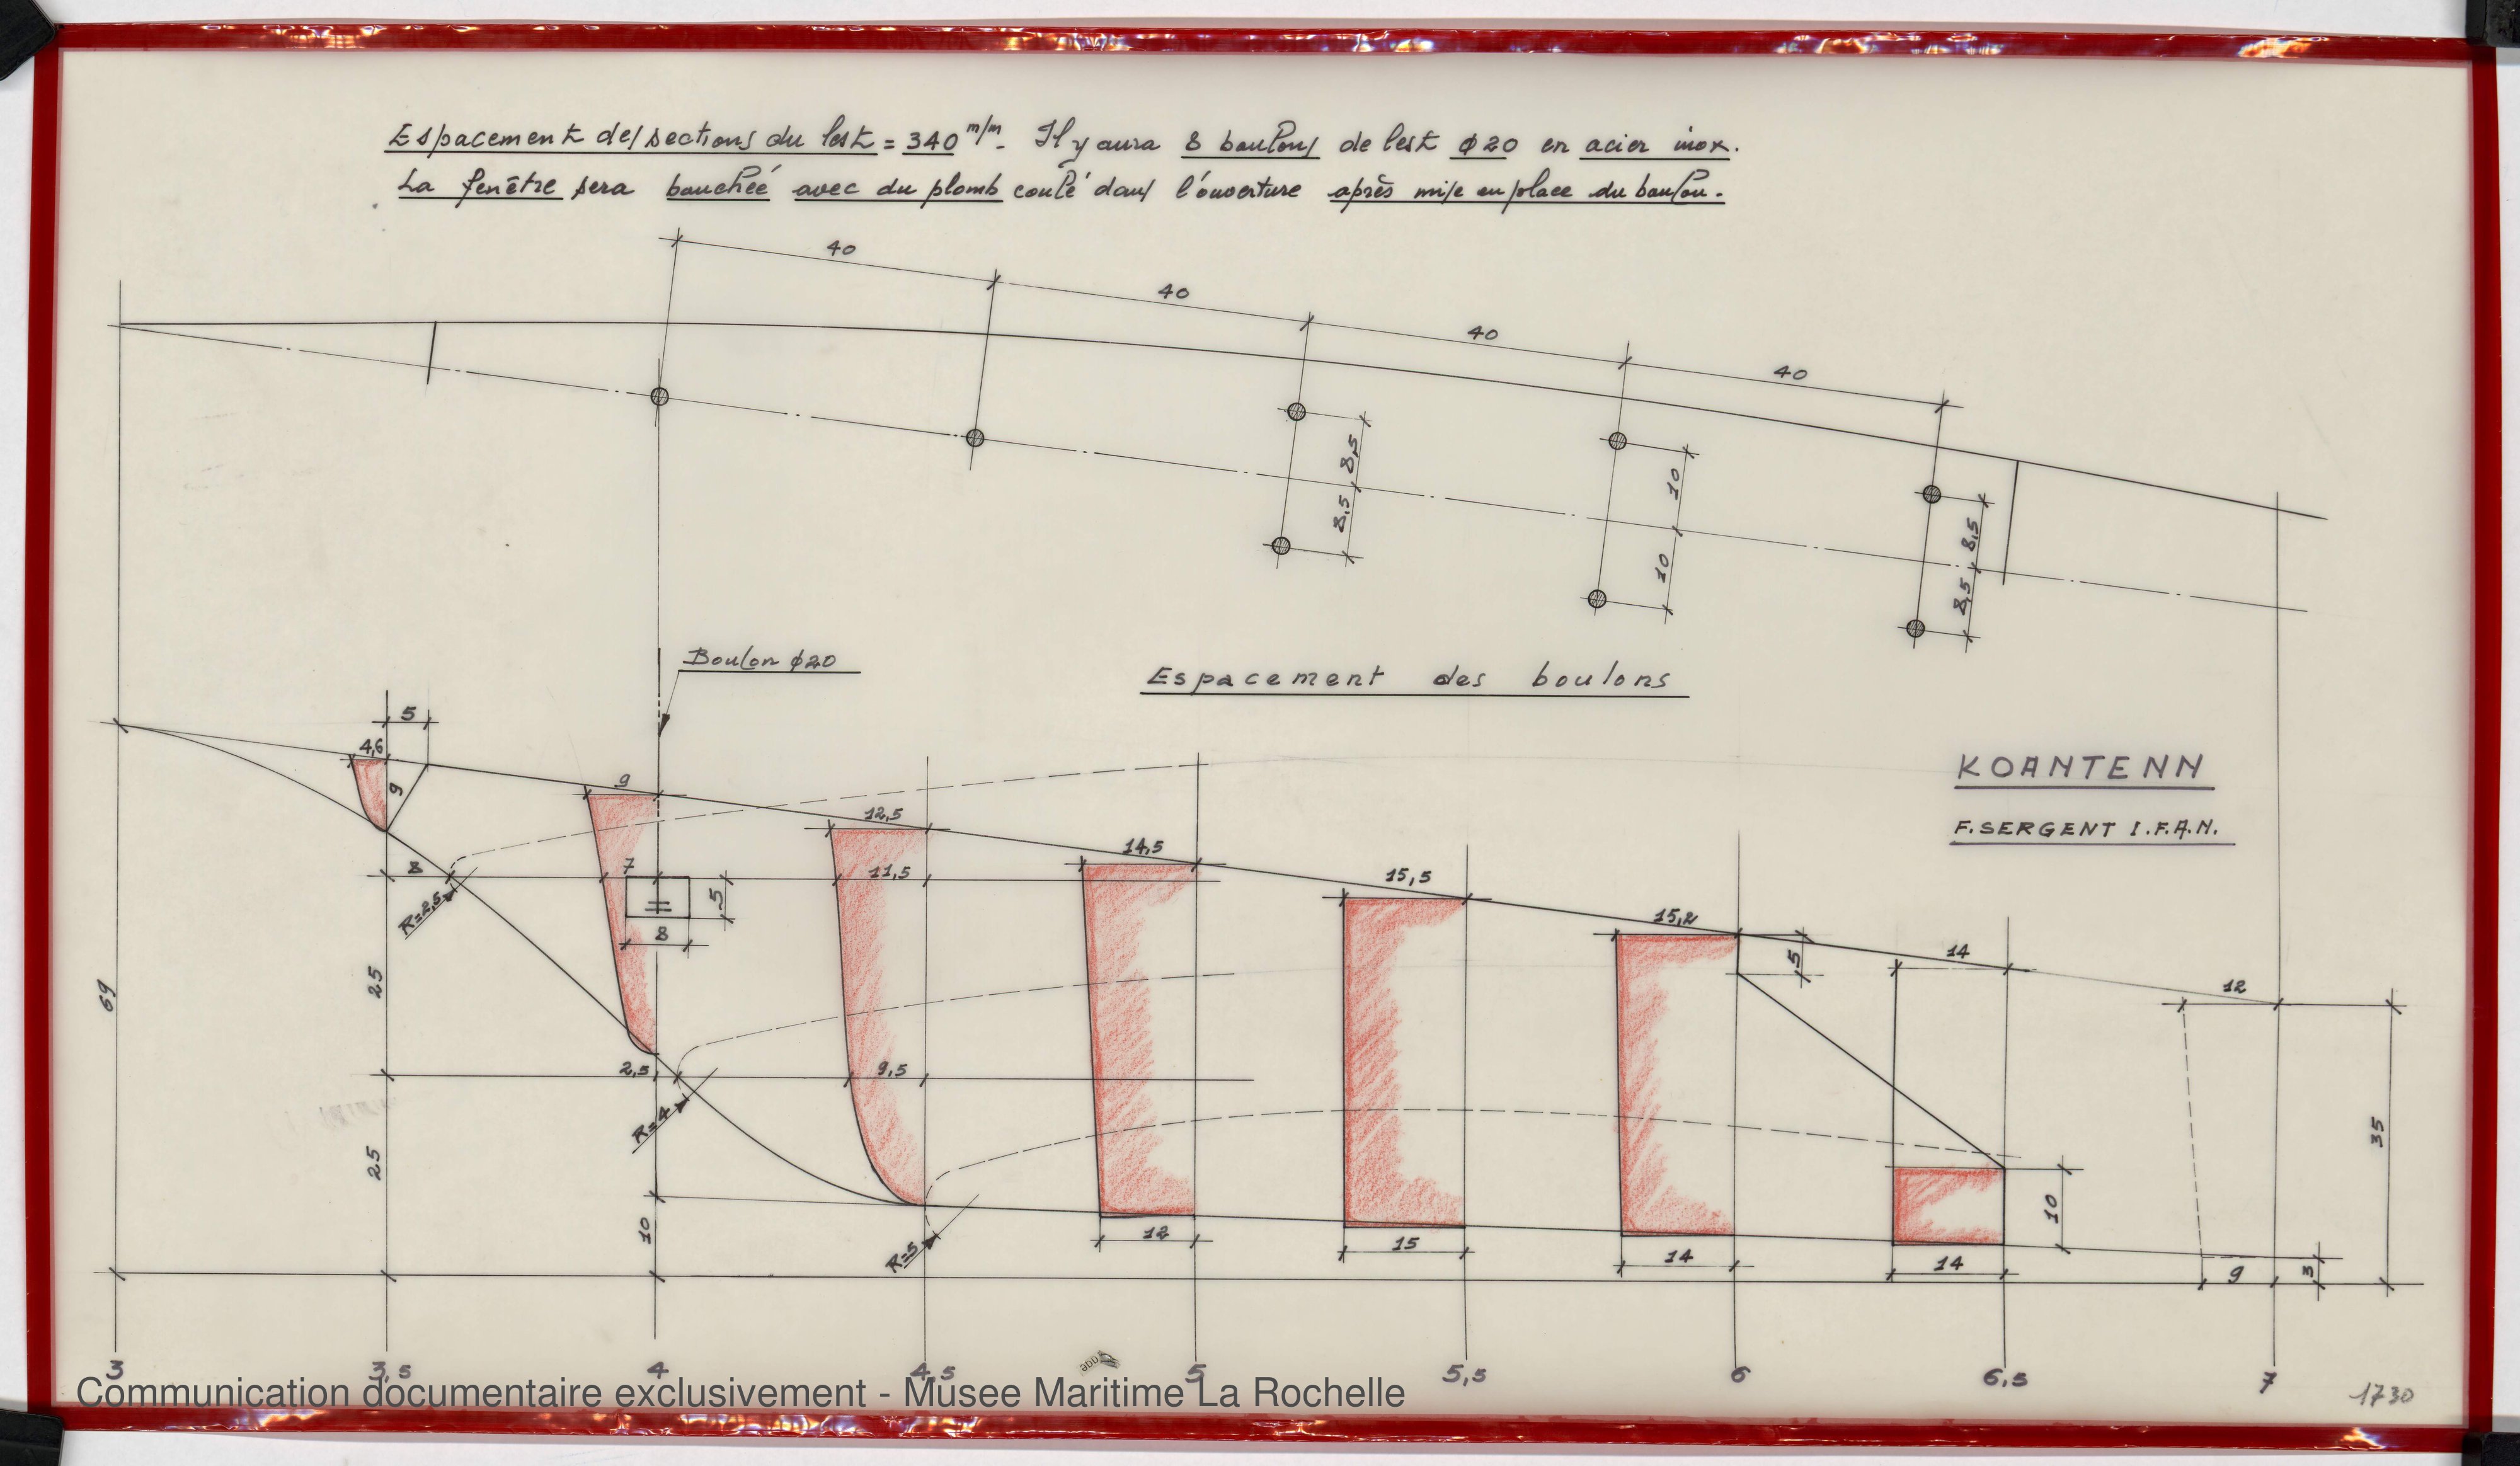 Espacement des sections du lest = 340 m/m. Il y aura 8 boulons de lest φ20 en acier inox.
La fenêtre sera bouchée avec du plomb coulé dans l'ouverture après mise en place du boulon.
40
40
40
40
8,5
8,5
10
10
8,5
8,5
Boulon φ20
Espacement des boulons
KOANTENN
F. SERGENT I.F.A.N.
5
4,6
9
9
12,5
14,5
15,5
15,2
14
12
8
7
11,5
5
8
5
R=2,5
69
25
2,5
9,5
R=4
25
10
R=5
12
15
14
14
10
9
3
35
3
3,5
4
4,5
5
5,5
6
6,5
7
1730
Communication documentaire exclusivement - Musee Maritime La Rochelle